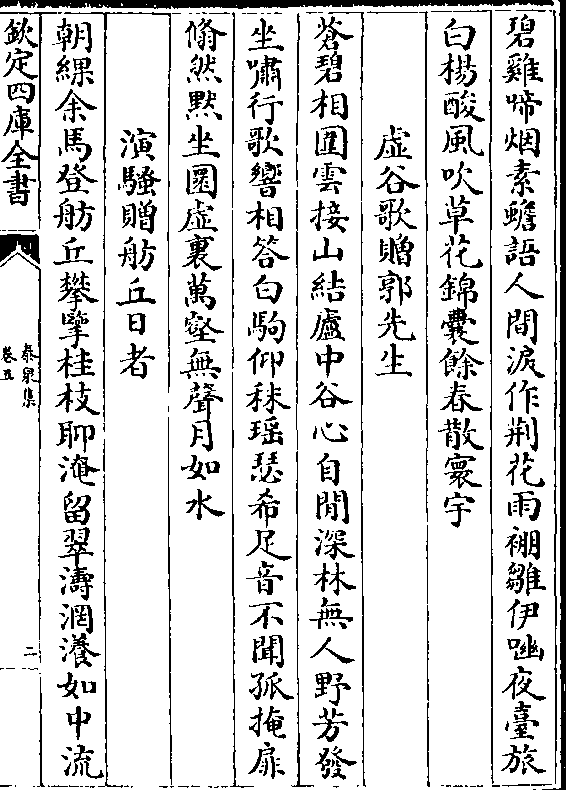 碧雞啼烟素蟾語人間淚作荆花雨裯雛伊呦夜臺旅
白楊酸風吹草花錦囊餘春散寰宇
虛谷歌贈郭先生
蒼碧相圍雲接山結廬中谷心自閒深林無人野芳發
坐嘯行歌響相答白駒仰秣瑶瑟希足音不聞孤掩扉
翛然黙坐圜虛裏萬壑無聲月如水
演騷贈舫丘日者
朝縲余馬登舫丘攀擥桂枝聊淹留翠濤㴏瀁如中流
欽定四庫全書
泰泉集
卷五
二